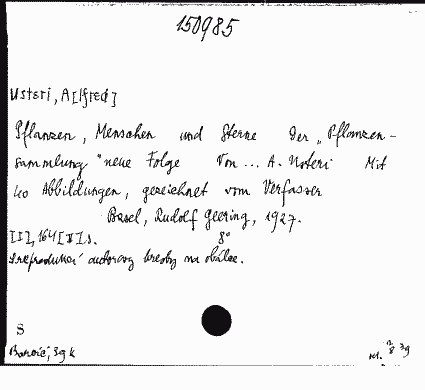 150985
Usteri, A[lfred]
Pflanzen, Menschen und Sterne Der „Pflanzen-
sammlung" neue Folge Von ... A. Usteri Mit
40 Abbildungen, gezeichnet vom Verfasser
Basel, Rudolf Geering, 1927.
[I], 164 [V] s. 8°
S reprodukcí autorovy kresby na obálce.
S
39